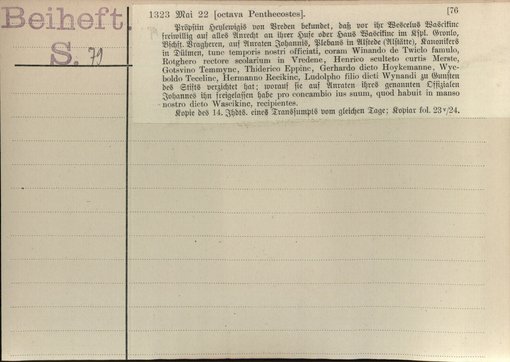 Beiheft.
S. 79
1323 Mai 22 [octava Penthecostes]. [76
Pröpstin Heylewigis von Vreden bekundet, daß vor ihr Wescelus Wascikinc
freiwillig auf alles Anrecht an ihrer Hufe oder Haus Wascikinc im Kspl. Gronlo,
Bschft. Bragheren, auf Anraten Johannis, Plebans in Alstede (Alstätte), Kanonikers
in Dülmen, tunc temporis nostri officiati, coram Winando de Twiclo famulo,
Rotghero rectore scolarium in Vredene, Henrico sculteto curtis Merste,
Gotsvino Temmyne, Thiderico Eppinc, Gerhardo dicto Hoykemanne, Wyc-
boldo Tecelinc, Hermanno Recikinc, Ludolpho filio dicti Wynandi zu Gunsten
des Stifts verzichtet hat; worauf sie auf Anraten ihres genannten Offizialen
Johannes ihn freigelassen habe pro concambio ius suum, quod habuit in manso
nostro dicto Wascikinc, recipientes.
Kopie des 14. Jhdts. eines Transsumpts vom gleichen Tage; Kopiar fol. 23v/24.